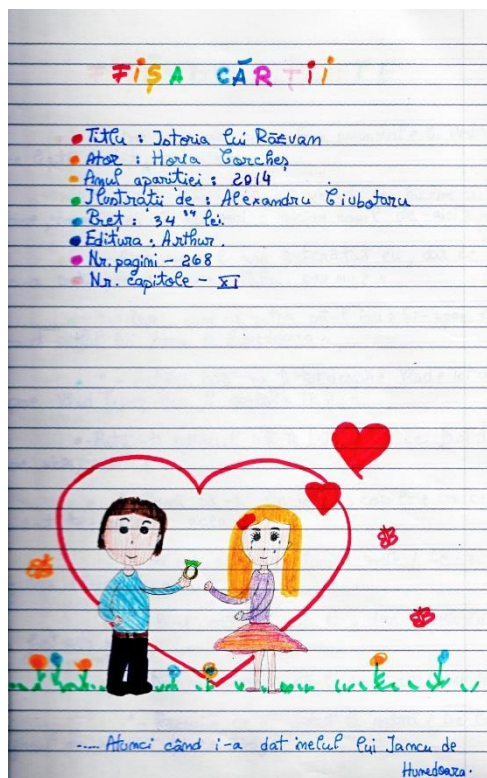 FIȘA CĂRȚII
Titlu : Istoria lui Răzvan
Ator : Horia Corcheș
Anul aparitiei : 2014
Ilustrații de : Alexandru Ciubotaru
Preț : 34 lei.
Editura : Arthur.
Nr. pagini - 268
Nr. capitole - XI
..... Atunci când i-a dat inelul lui Iancu de
Hunedoara.